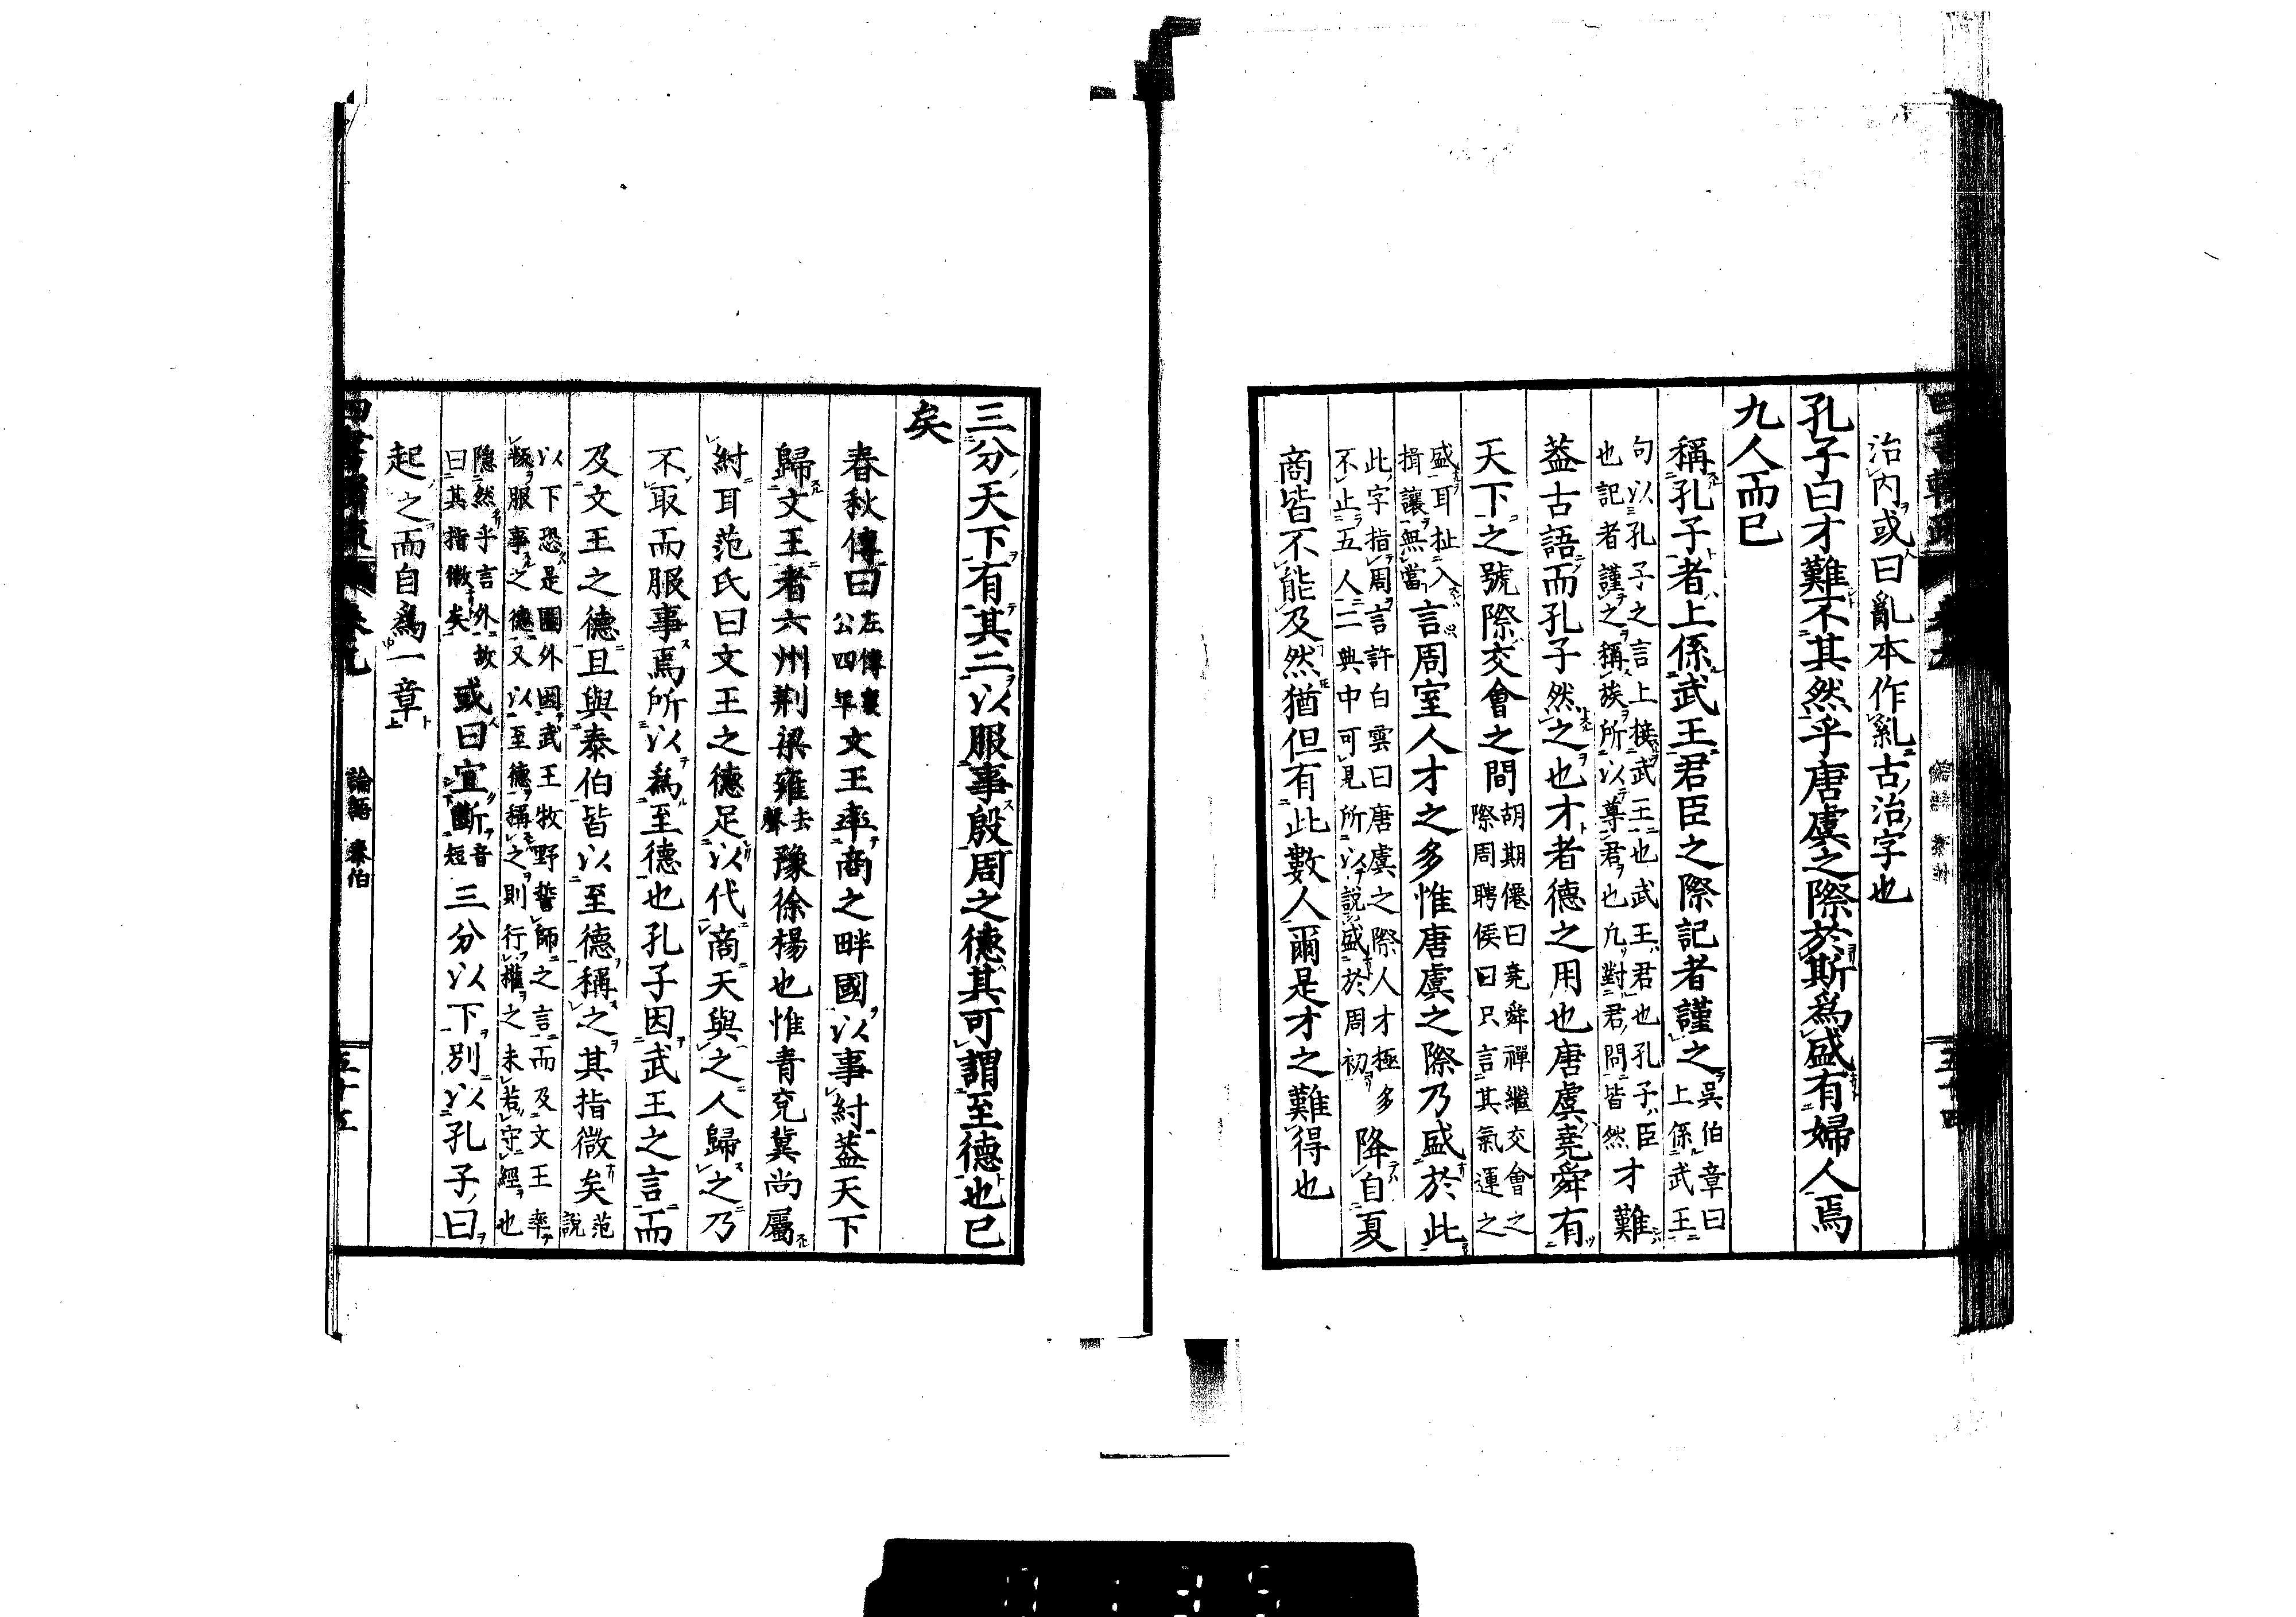 治内或曰亂本作乿古治字也
孔子曰才難不其然乎唐虞之際於斯爲盛有婦人焉
九人而已
稱孔子者上係武王君臣之際記者謹之吳伯章曰上係武王
句以孔子之言上接武王也武王君也孔子臣也記者謹之稱族所以尊君也凡對君問皆然才難
蓋古語而孔子然之也才者德之用也唐虞堯舜有
天下之號際交會之間胡期僊曰堯舜禪繼交會之際周聘侯曰只言其氣運之
盛耳扯入揖讓無當言周室人才之多惟唐虞之際乃盛於此
此字指周言許白雲曰唐虞之際人才極多不止五人二典中可見所以說盛於周初降自夏
商皆不能及然猶但有此數人爾是才之難得也
三分天下有其二以服事殷周之德其可謂至德也已
矣
春秋傳曰左傳襄公四年文王率商之畔國以事紂蓋天下
歸文王者六州荆梁雍去聲豫徐楊也惟青兗冀尚屬
紂耳范氏曰文王之德足以代商天與之人歸之乃
不取而服事焉所以爲至德也孔子因武王之言而
及文王之德且與泰伯皆以至德稱之其指微矣范說
以下恐是圈外因武王牧野誓師之言而及文王率叛服事之德又以至德稱之則行權之未若守經也
隱然乎言外故曰其指微矣或曰宜斷音短三分以下別以孔子曰
起之而自爲一章
論語 泰伯